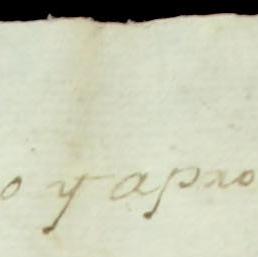 o y apro